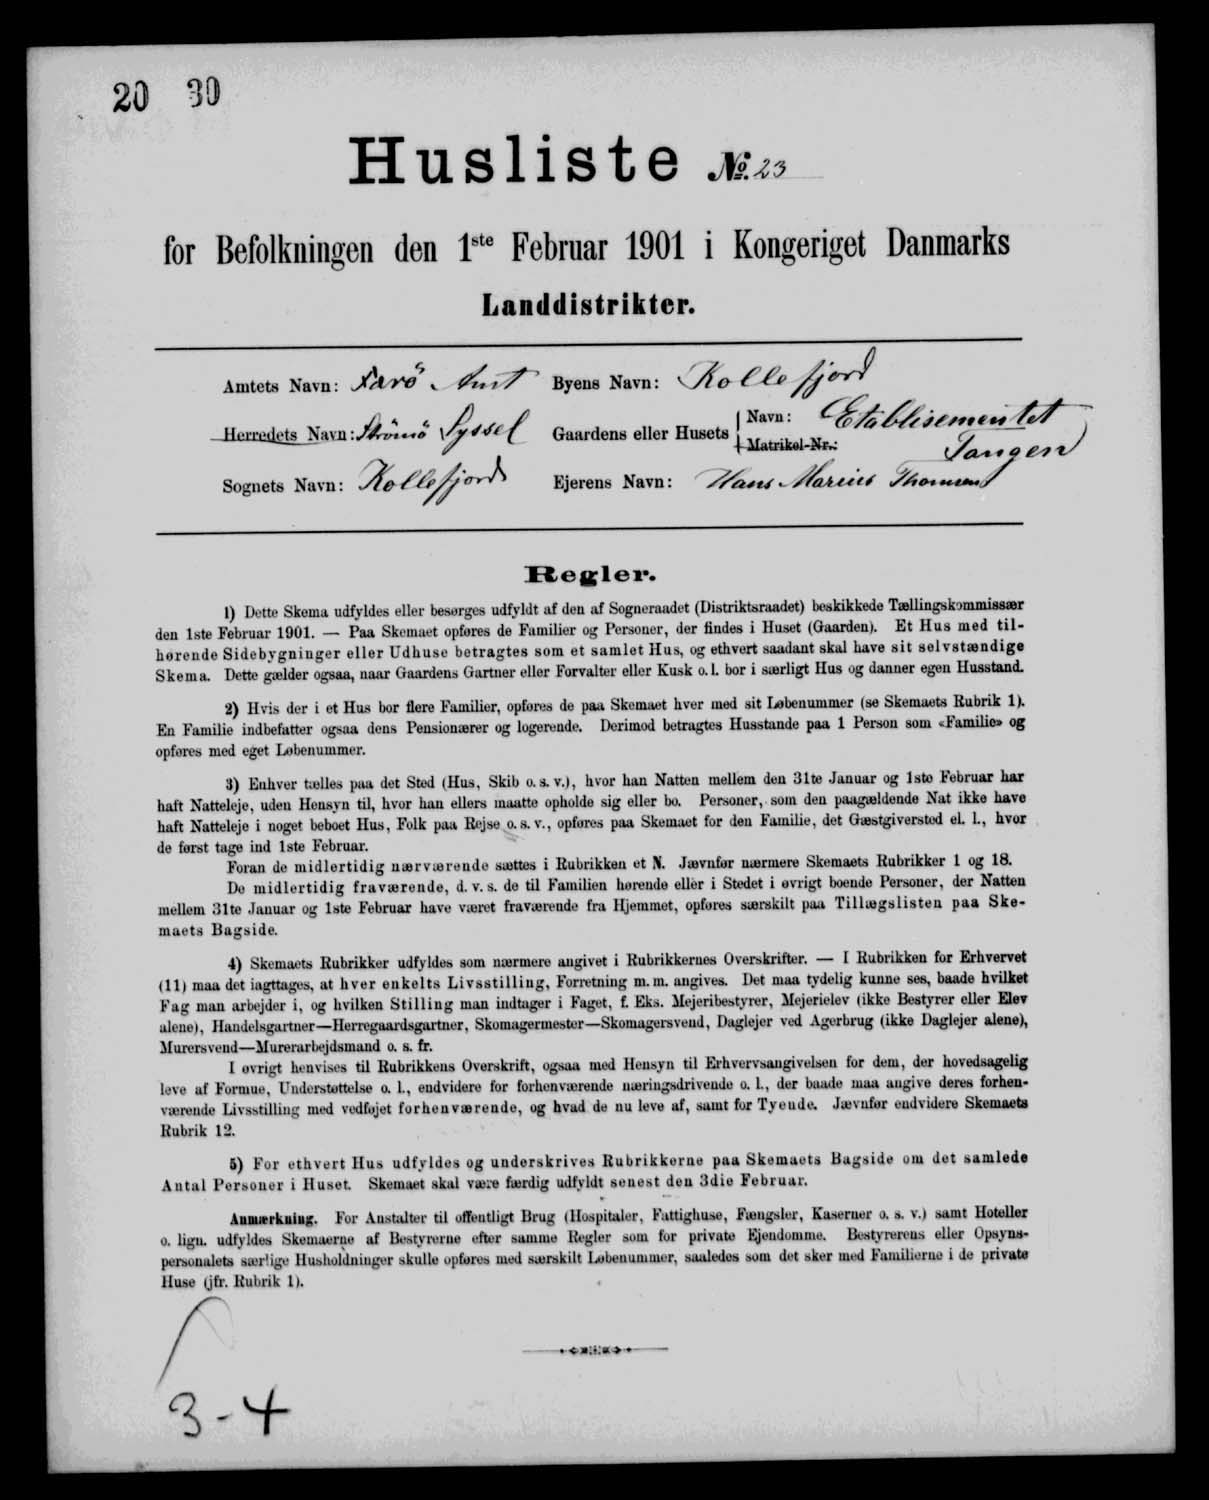 20 30
Husliste No. 23
for Befolkningen den 1ste Februar 1901 i Kongeriget Danmarks
Landdistrikter.
Amtets Navn: Færö Amt Byens Navn: Kollefjord
Herredets Navn: Strömö Syssel Gaardens eller Husets Navn: Etablisementet
Matrikel-Nr.: Tangen
Sognets Navn: Kollefjord Ejerens Navn: Hans Marius Thomsen
Regler.
1) Dette Skema udfyldes eller besørges udfyldt af den af Sogneraadet (Distriktsraadet) beskikkede Tællingskommissær
den 1ste Februar 1901. — Paa Skemaet opføres de Familier og Personer, der findes i Huset (Gaarden). Et Hus med til-
hørende Sidebygninger eller Udhuse betragtes som et samlet Hus, og ethvert saadant skal have sit selvstændige
Skema. Dette gælder ogsaa, naar Gaardens Gartner eller Forvalter eller Kusk o. l. bor i særligt Hus og danner egen Husstand.
2) Hvis der i et Hus bor flere Familier, opføres de paa Skemaet hver med sit Løbenummer (se Skemaets Rubrik 1).
En Familie indbefatter ogsaa dens Pensionærer og logerende. Derimod betragtes Husstande paa 1 Person som «Familie» og
opføres med eget Løbenummer.
3) Enhver tælles paa det Sted (Hus, Skib o. s. v.), hvor han Natten mellem den 31te Januar og 1ste Februar har
haft Natteleje, uden Hensyn til, hvor han ellers maatte opholde sig eller bo. Personer, som den paagældende Nat ikke have
haft Natteleje i noget beboet Hus, Folk paa Rejse o. s. v., opføres paa Skemaet for den Familie, det Gæstgiversted el. l., hvor
de først tage ind 1ste Februar.
Foran de midlertidig nærværende sættes i Rubrikken et N. Jævnfør nærmere Skemaets Rubrikker 1 og 18.
De midlertidig fraværende, d. v. s. de til Familien hørende eller i Stedet i øvrigt boende Personer, der Natten
mellem 31te Januar og 1ste Februar have været fraværende fra Hjemmet, opføres særskilt paa Tillægslisten paa Ske-
maets Bagside.
4) Skemaets Rubrikker udfyldes som nærmere angivet i Rubrikkernes Overskrifter. — I Rubrikken for Erhvervet
(11) maa det iagttages, at hver enkelts Livsstilling, Forretning m. m. angives. Det maa tydelig kunne ses, baade hvilket
Fag man arbejder i, og hvilken Stilling man indtager i Faget, f. Eks. Mejeribestyrer, Mejerielev (ikke Bestyrer eller Elev
alene), Handelsgartner—Herregaardsgartner, Skomagermester—Skomagersvend, Daglejer ved Agerbrug (ikke Daglejer alene),
Murersvend—Murerarbejdsmand o. s. fr.
I øvrigt henvises til Rubrikkens Overskrift, ogsaa med Hensyn til Erhvervsangivelsen for dem, der hovedsagelig
leve af Formue, Understøttelse o. l., endvidere for forhenværende næringsdrivende o. l., der baade maa angive deres forhen-
værende Livsstilling med vedføjet forhenværende, og hvad de nu leve af, samt for Tyende. Jævnfør endvidere Skemaets
Rubrik 12.
5) For ethvert Hus udfyldes og underskrives Rubrikkerne paa Skemaets Bagside om det samlede
Antal Personer i Huset. Skemaet skal være færdig udfyldt senest den 3die Februar.
Anmærkning. For Anstalter til offentligt Brug (Hospitaler, Fattighuse, Fængsler, Kaserner o. s. v.) samt Hoteller
o. lign. udfyldes Skemaerne af Bestyrerne efter samme Regler som for private Ejendomme. Bestyrerens eller Opsyns-
personalets særlige Husholdninger skulle opføres med særskilt Løbenummer, saaledes som det sker med Familierne i de private
Huse (jfr. Rubrik 1).
3-4